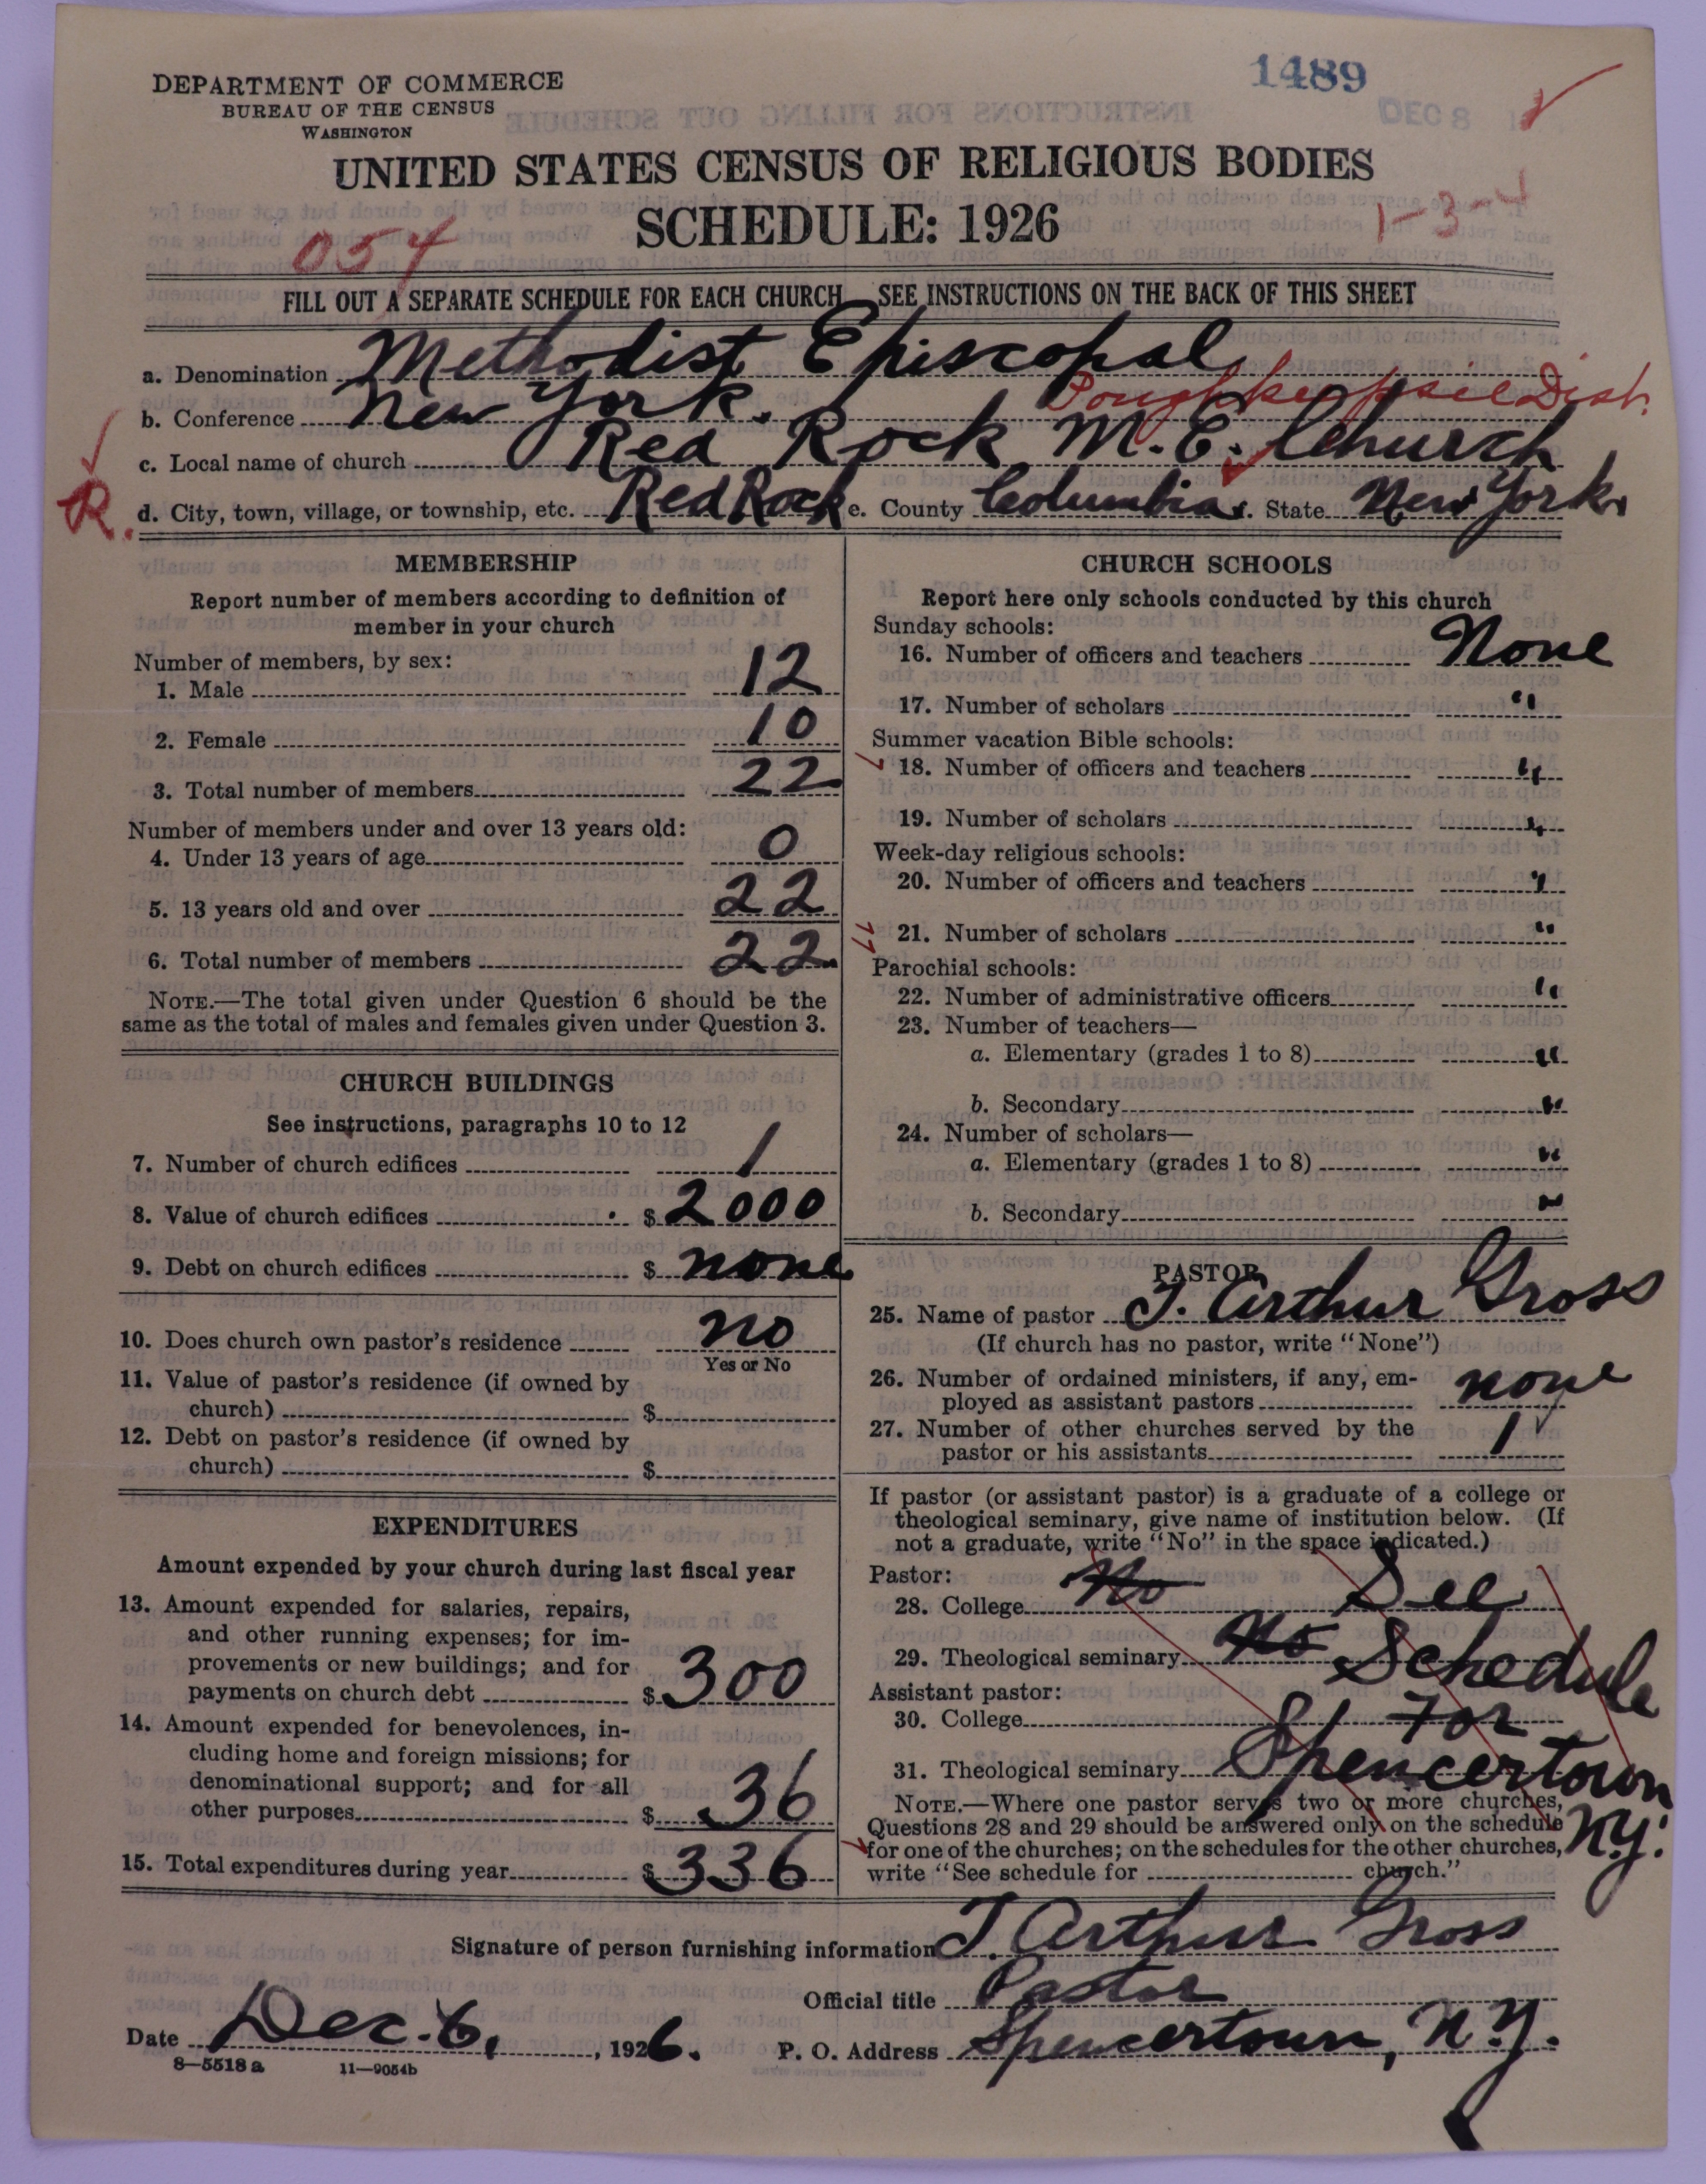 DEPARTMENT OF COMMERCE
BUREAU OF THE CENSUS
WASHINGTON
1489
DEC 8
UNITED STATES CENSUS OF RELIGIOUS BODIES
SCHEDULE: 1926
054
1-3-4
FILL OUT A SEPARATE SCHEDULE FOR EACH CHURCH SEE INSTRUCTIONS ON THE BACK OF THIS SHEET
a. Denomination Methodist Episcopal
b. Conference New York. Poughkeepsie Dist.
c. Local name of church Red Rock M.E. Church
R. d. City, town, village, or township, etc. Red Rock e. County Columbia f. State New York
MEMBERSHIP
Report number of members according to definition of
member in your church
Number of members, by sex:
1. Male 12
2. Female 10
3. Total number of members 22
Number of members under and over 13 years old:
4. Under 13 years of age 0
5. 13 years old and over 22
6. Total number of members 22
NOTE.—The total given under Question 6 should be the
same as the total of males and females given under Question 3.
CHURCH BUILDINGS
See instructions, paragraphs 10 to 12
7. Number of church edifices 1
8. Value of church edifices $ 2000
9. Debt on church edifices $ none
10. Does church own pastor's residence no
Yes or No
11. Value of pastor's residence (if owned by
church) $
12. Debt on pastor's residence (if owned by
church) $
EXPENDITURES
Amount expended by your church during last fiscal year
13. Amount expended for salaries, repairs,
and other running expenses; for im-
provements or new buildings; and for
payments on church debt $ 300
14. Amount expended for benevolences, in-
cluding home and foreign missions; for
denominational support; and for all
other purposes $ 36
15. Total expenditures during year $ 336
CHURCH SCHOOLS
Report here only schools conducted by this church
Sunday schools:
16. Number of officers and teachers None
17. Number of scholars "
Summer vacation Bible schools:
18. Number of officers and teachers "
19. Number of scholars "
Week-day religious schools:
20. Number of officers and teachers "
21. Number of scholars "
Parochial schools:
22. Number of administrative officers "
23. Number of teachers—
a. Elementary (grades 1 to 8) "
b. Secondary "
24. Number of scholars—
a. Elementary (grades 1 to 8) "
b. Secondary "
PASTOR
25. Name of pastor J. Arthur Gross
(If church has no pastor, write "None")
26. Number of ordained ministers, if any, em-
ployed as assistant pastors none
27. Number of other churches served by the
pastor or his assistants 1
If pastor (or assistant pastor) is a graduate of a college or
theological seminary, give name of institution below. (If
not a graduate, write "No" in the space indicated.)
Pastor:
28. College No See
29. Theological seminary No Schedule
Assistant pastor:
30. College for
31. Theological seminary Spencertown
N.Y.
NOTE.—Where one pastor serves two or more churches,
Questions 28 and 29 should be answered only on the schedule
for one of the churches; on the schedules for the other churches,
write "See schedule for church."
Signature of person furnishing information J. Arthur Gross
Official title Pastor
Date Dec. 6, 1926. P. O. Address Spencertown, N.Y.
8—5518 a 11—9054b